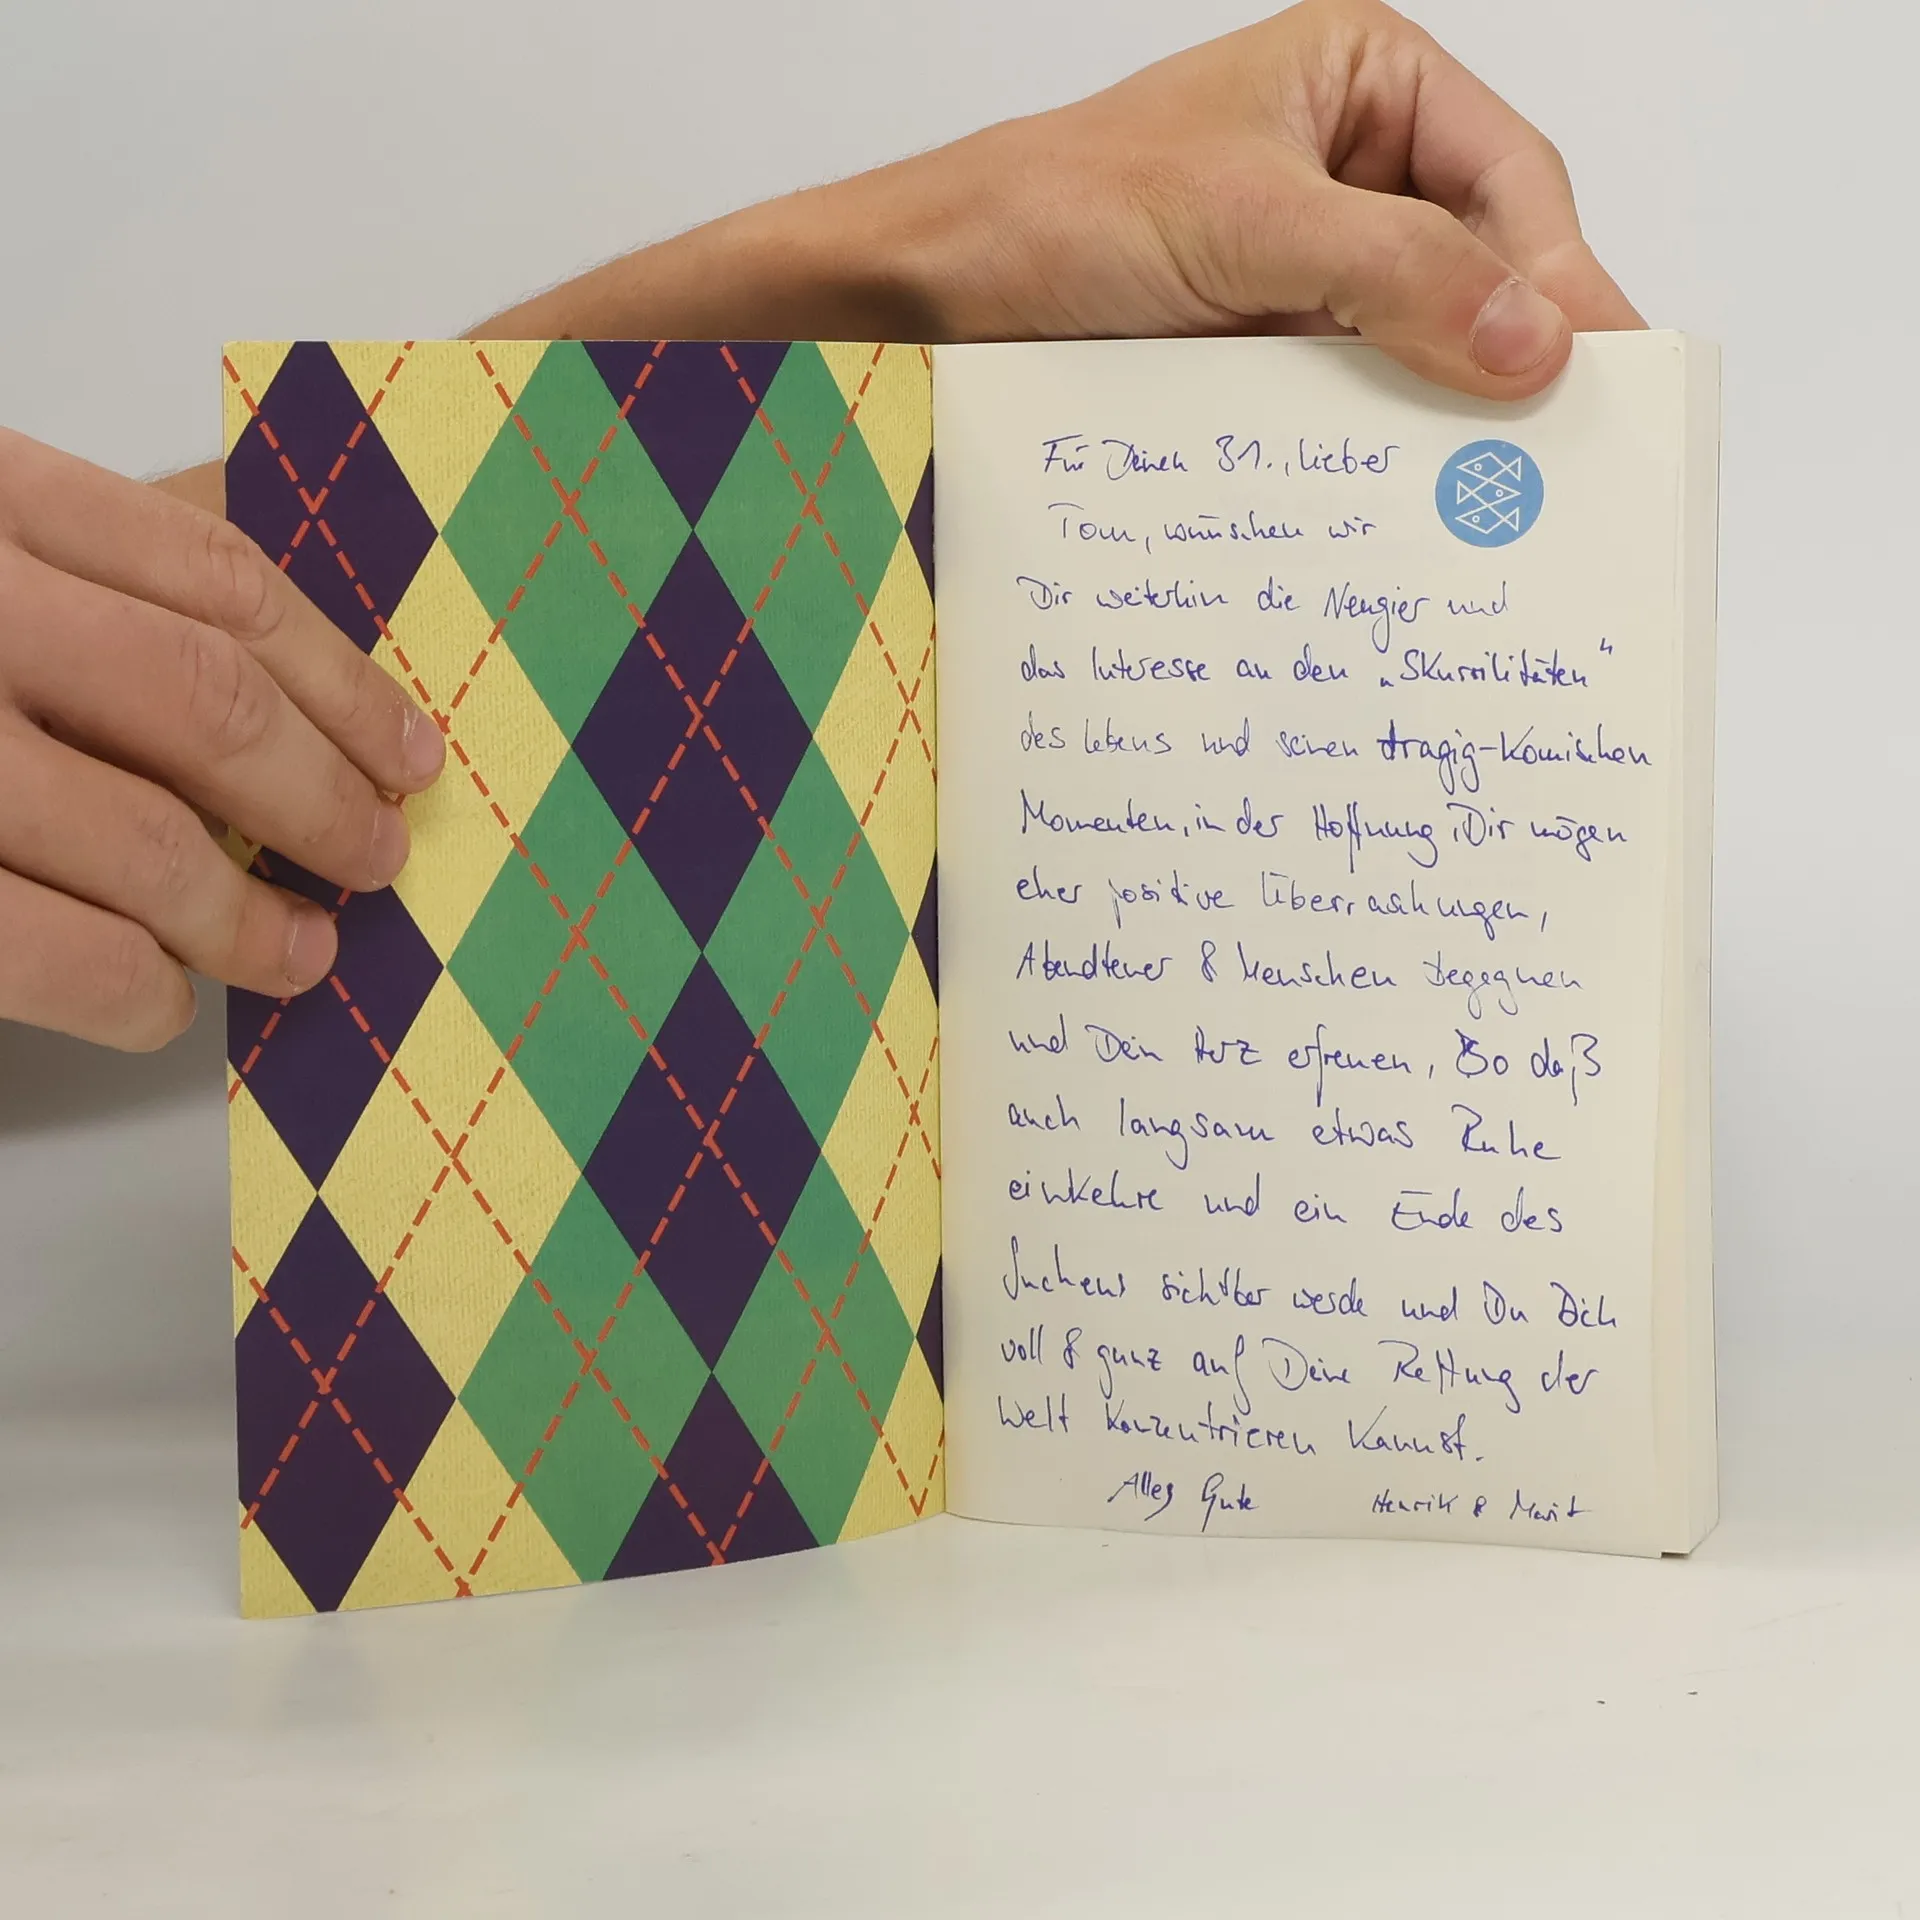 Für Deinen 31., lieber
Tom, wünschen wir
Dir weiterhin die Neugier und
das Interesse an den „Skurrilitäten“
des Lebens und seinen tragig-komischen
Momenten, in der Hoffnung, Dir mögen
eher positive Überraschungen,
Abendteuer & Menschen begegnen
und Dein Herz erfreuen, So daß
auch langsam etwas Ruhe
einkehre und ein Ende des
Suchens sichtbar werde und Du Dich
voll & ganz auf Deine Rettung der
Welt konzentrieren kannst.
Alles Gute Henrik & Marit